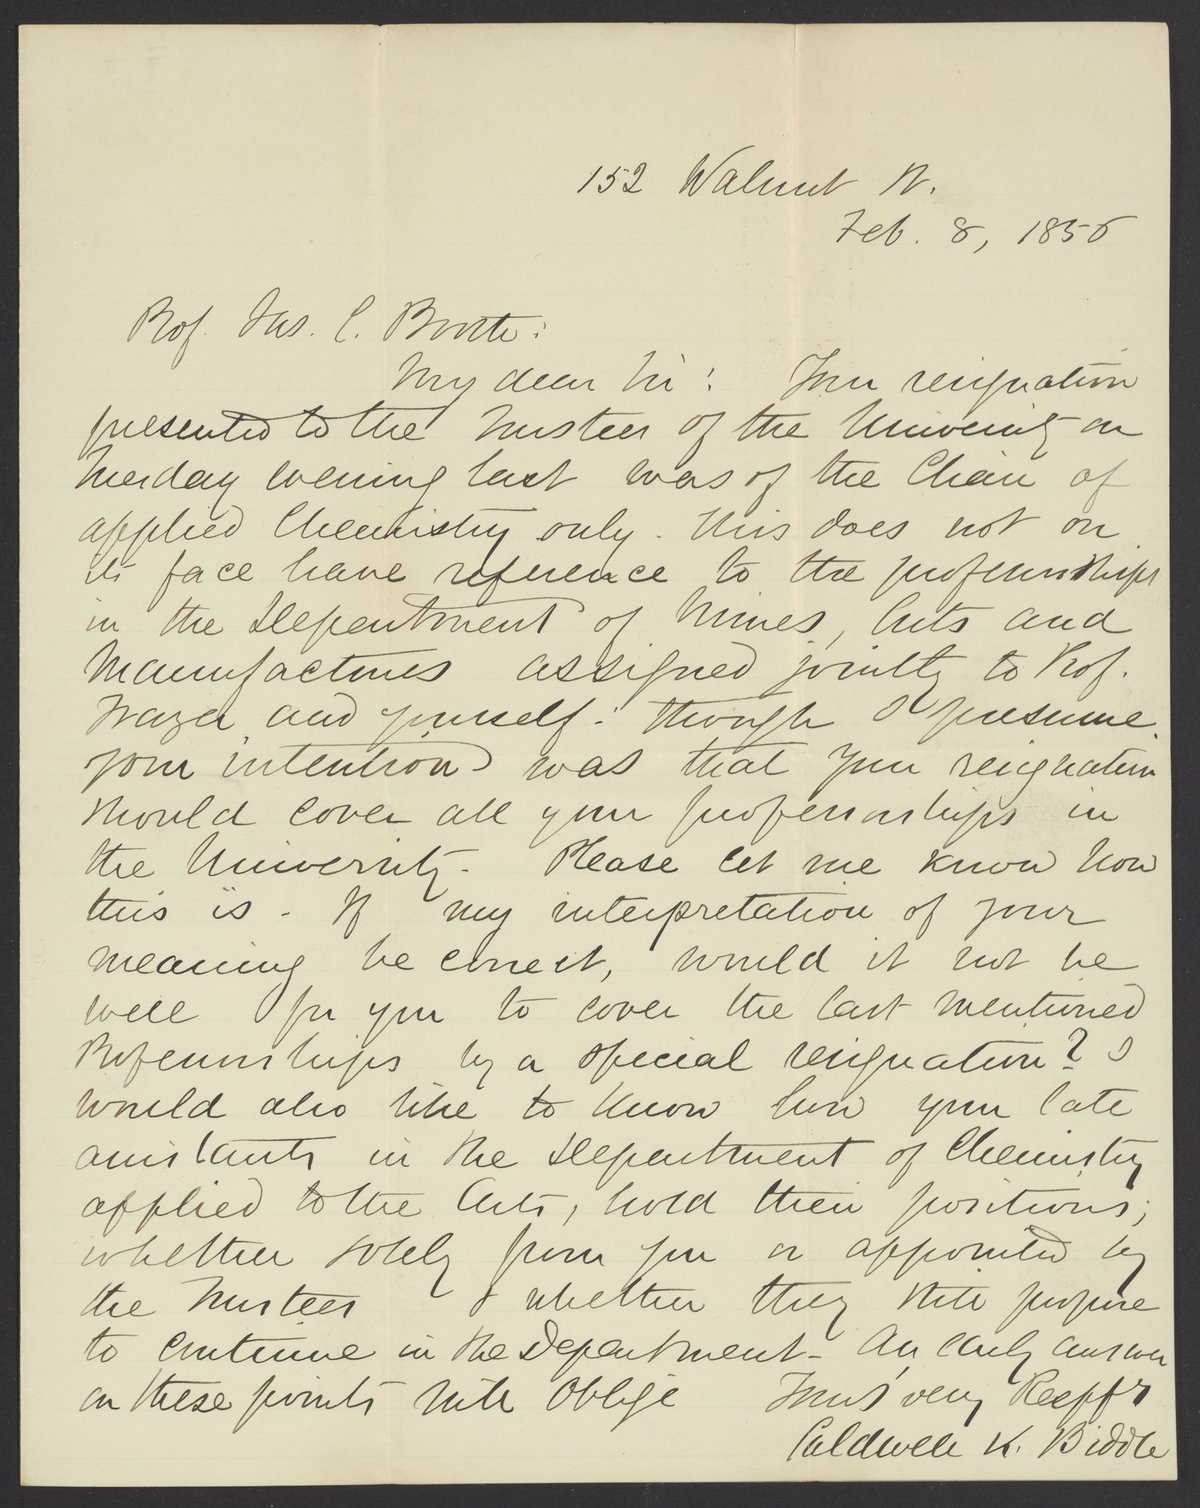 152 Walnut St.
Feb. 8, 1856
Prof. Jas. C. Booth:
My dear Sir: Your resignation
presented to the Trustees of the University on
Tuesday evening last was of the Chair of
applied Chemistry only. This does not on
its face have reference to the professorships
in the Department of Mines, Arts and
Manufactures assigned jointly to Prof.
Frazer and yourself: though I presume
your intention was that your resignation
should cover all your professorships in
the University. Please let me know how
this is. If my interpretation of your
meaning be correct, would it not be
well for you to cover the last mentioned
Professorships by a special resignation? I
would also like to know how your late
assistants in the Department of Chemistry
applied to the Arts, hold their positions;
whether solely from you or appointed by
the Trustees & whether they still propose
to continue in the Department - An early answer
on these points will oblige Yours very Respfy
Caldwell K. Biddle